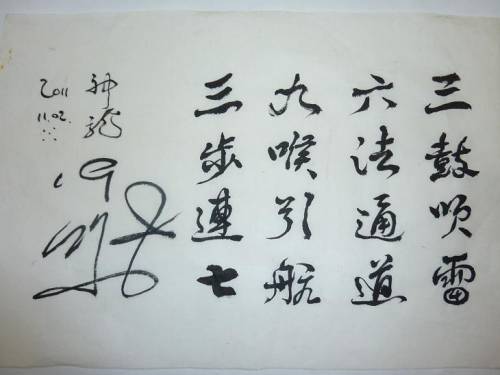 三鼓吹雷
六法通道
九喉引航
三步連七
神龍
2011
11.02.